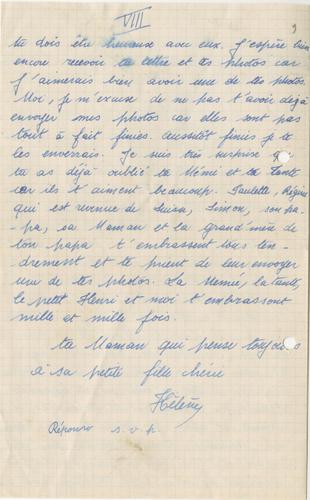 VIII
9
tu dois être heureuse avec eux. J'espère bien
encore recevoir ta lettre et tes photos car
j'aimerais bien avoir une de tes photos.
Moi, je m'excuse de ne pas t'avoir déjà
envoyer mes photos car elles sont pas
tout à fait finies. Aussitôt finies je te
les enverrais. Je suis très surprise
tu as déjà oublié ta Mémé et ta Tante
car ils t'aiment beaucoup. Paulette, Régine
qui est revenue de Suisse, Simon, son pa-
pa, sa Maman et la grand'mère de
ton papa t'embrassent tous ten-
drement et te prient de leur envoyer
une de tes photos. La Mémé, la tante,
le petit Henri et moi t'embrassont
mille et mille fois.
ta Maman qui pense toujours
à sa petite fille chérie
Hélène
Réponse s.v.p.